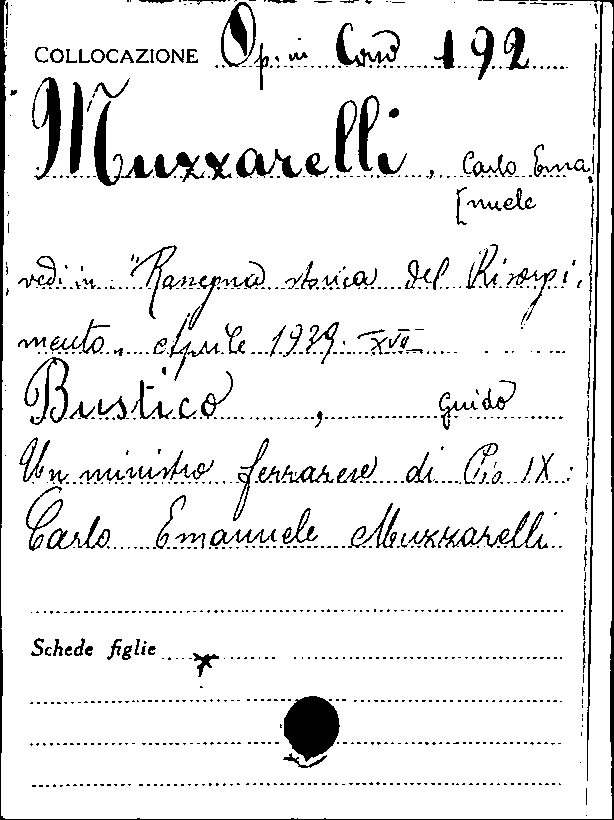 COLLOCAZIONE Op. in Corso 192
Muzzarelli, Carlo Ema
[nuele
vedi in "Rassegna storica del Risorgi,
mento, Aprile 1939. XVII
Bustico, Guido
Un ministro ferrarese di Pio IX:
Carlo Emanuele Muzzarelli
Schede figlie